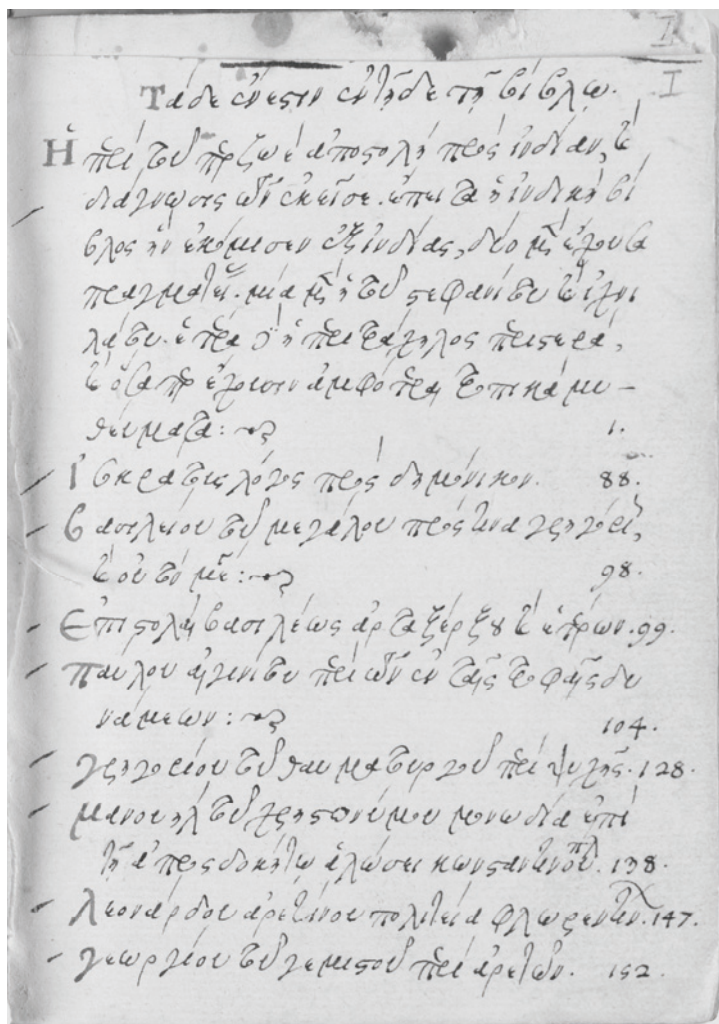 I
I
Τάδε ἔνεστιν ἐν τῇδε τῇ βίβλῳ.
Ἡ περὶ τοῦ περζωὲ ἀποστολὴ πρὸς ἰνδίαν, καὶ
διάγνωσις τῶν ἐκεῖσε. ἔπειτα ἡ ἰνδικὴ βί
βλος ἣν ἐκόμισεν ἐξ ἰνδίας, δύο μὲν ἔχουσα
πραγματείας. μία μὲν ἡ τοῦ στεφανίτου καὶ ἰχνη
λάτου. ἑτέρα δὲ ἡ περιτράχηλος περιστερά,
καὶ ὅσαπερ ἔχουσιν ἀμφότεραι τοπικὰ μυ-
θεύματα: 1.
ἰσοκράτους λόγος πρὸς δημόνικον. 88.
βασιλείου τοῦ μεγάλου πρὸς τινα γρηγόριον,
καὶ οὗτό με: 98.
Ἐπιστολαὶ βασιλέως ἀρταξέρξου καὶ ἑτέρων. 99.
παύλου αἰγινίτου περὶ τῶν ἐν ταῖς τροφαῖς δυ
νάμεων: 104.
γρηγορίου τοῦ θαυματουργοῦ περὶ ψυχῆς. 128.
μανουὴλ τοῦ χρηστωνύμου μονωδία ἐπὶ
τῇ ἀπροσδοκήτῳ ἁλώσει κωνσταντινουπόλεως. 138.
λεονάρδου ἀρετίνου πολιτεία φλωρεντίνων. 147.
γεωργίου τοῦ γεμιστοῦ περὶ ἀρετῶν. 152.